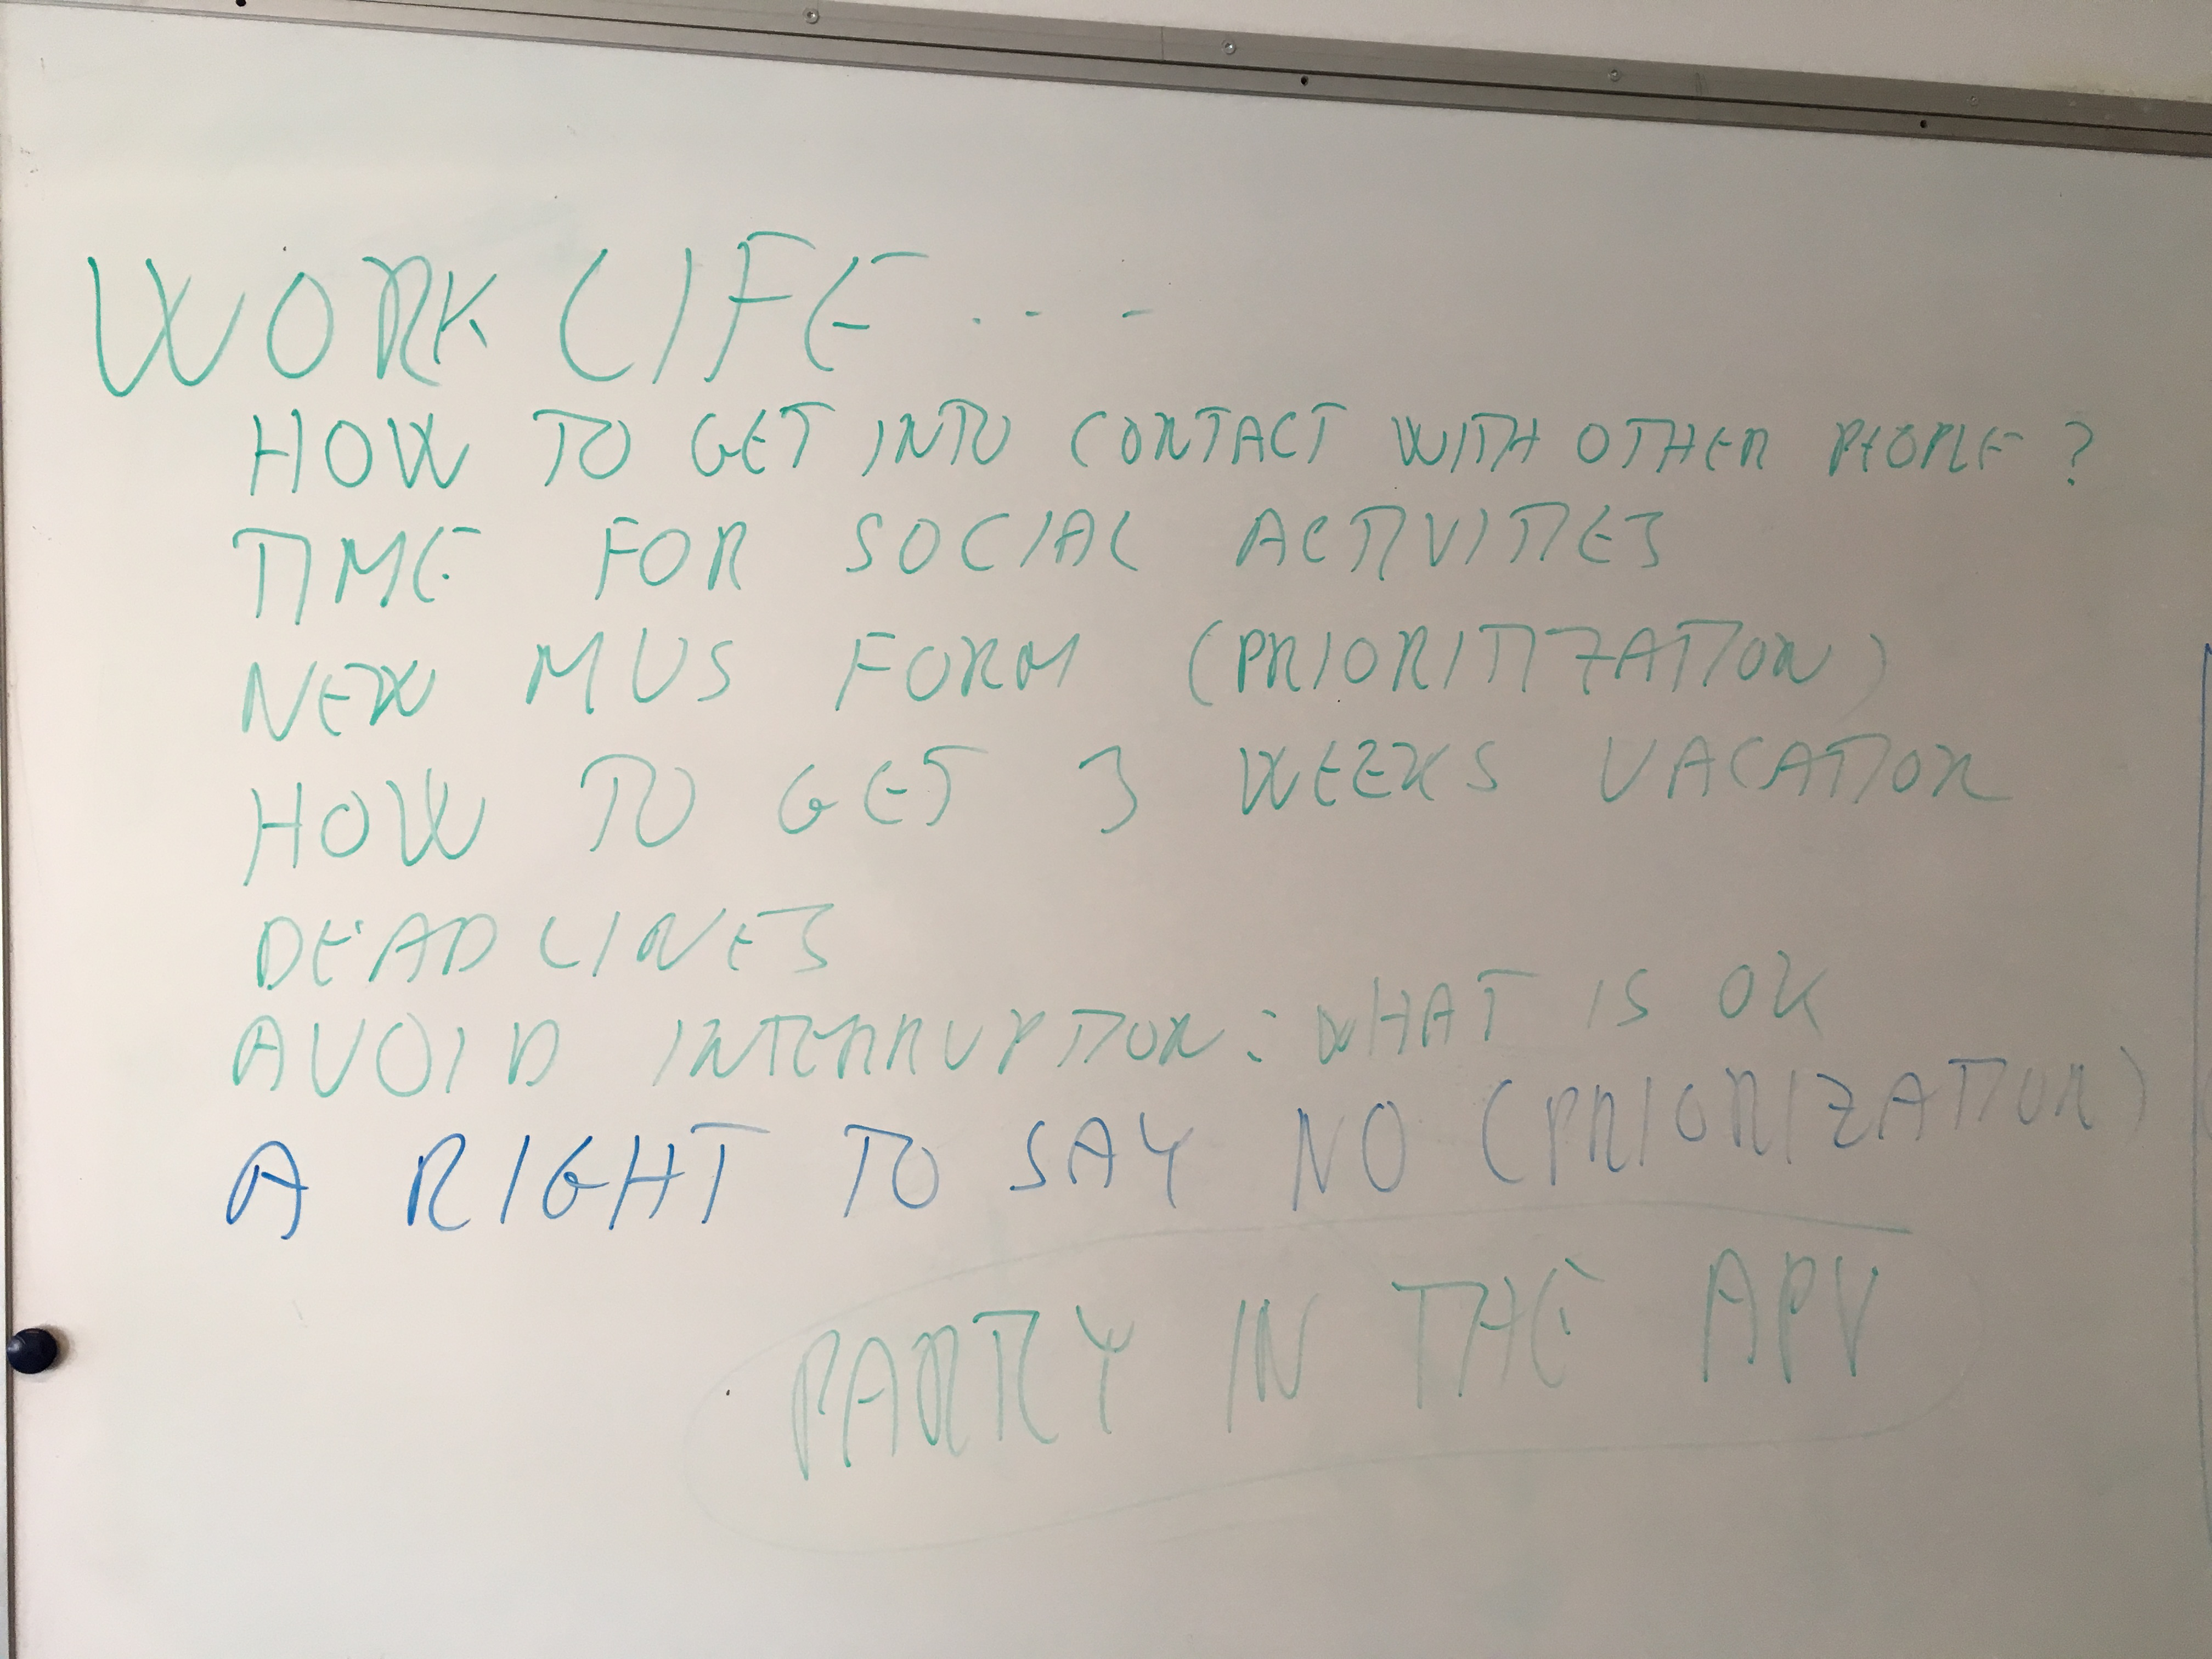 WORK LIFE ...
HOW TO GET INTO CONTACT WITH OTHER PEOPLE ?
TIME FOR SOCIAL ACTIVITIES
NEW MUS FORM (PRIORITIZATION)
HOW TO GET 3 WEEKS VACATION
DEADLINES
AVOID INTERRUPTION : WHAT IS OK
A RIGHT TO SAY NO (PRIORIZATION)
PARTLY IN THE APV